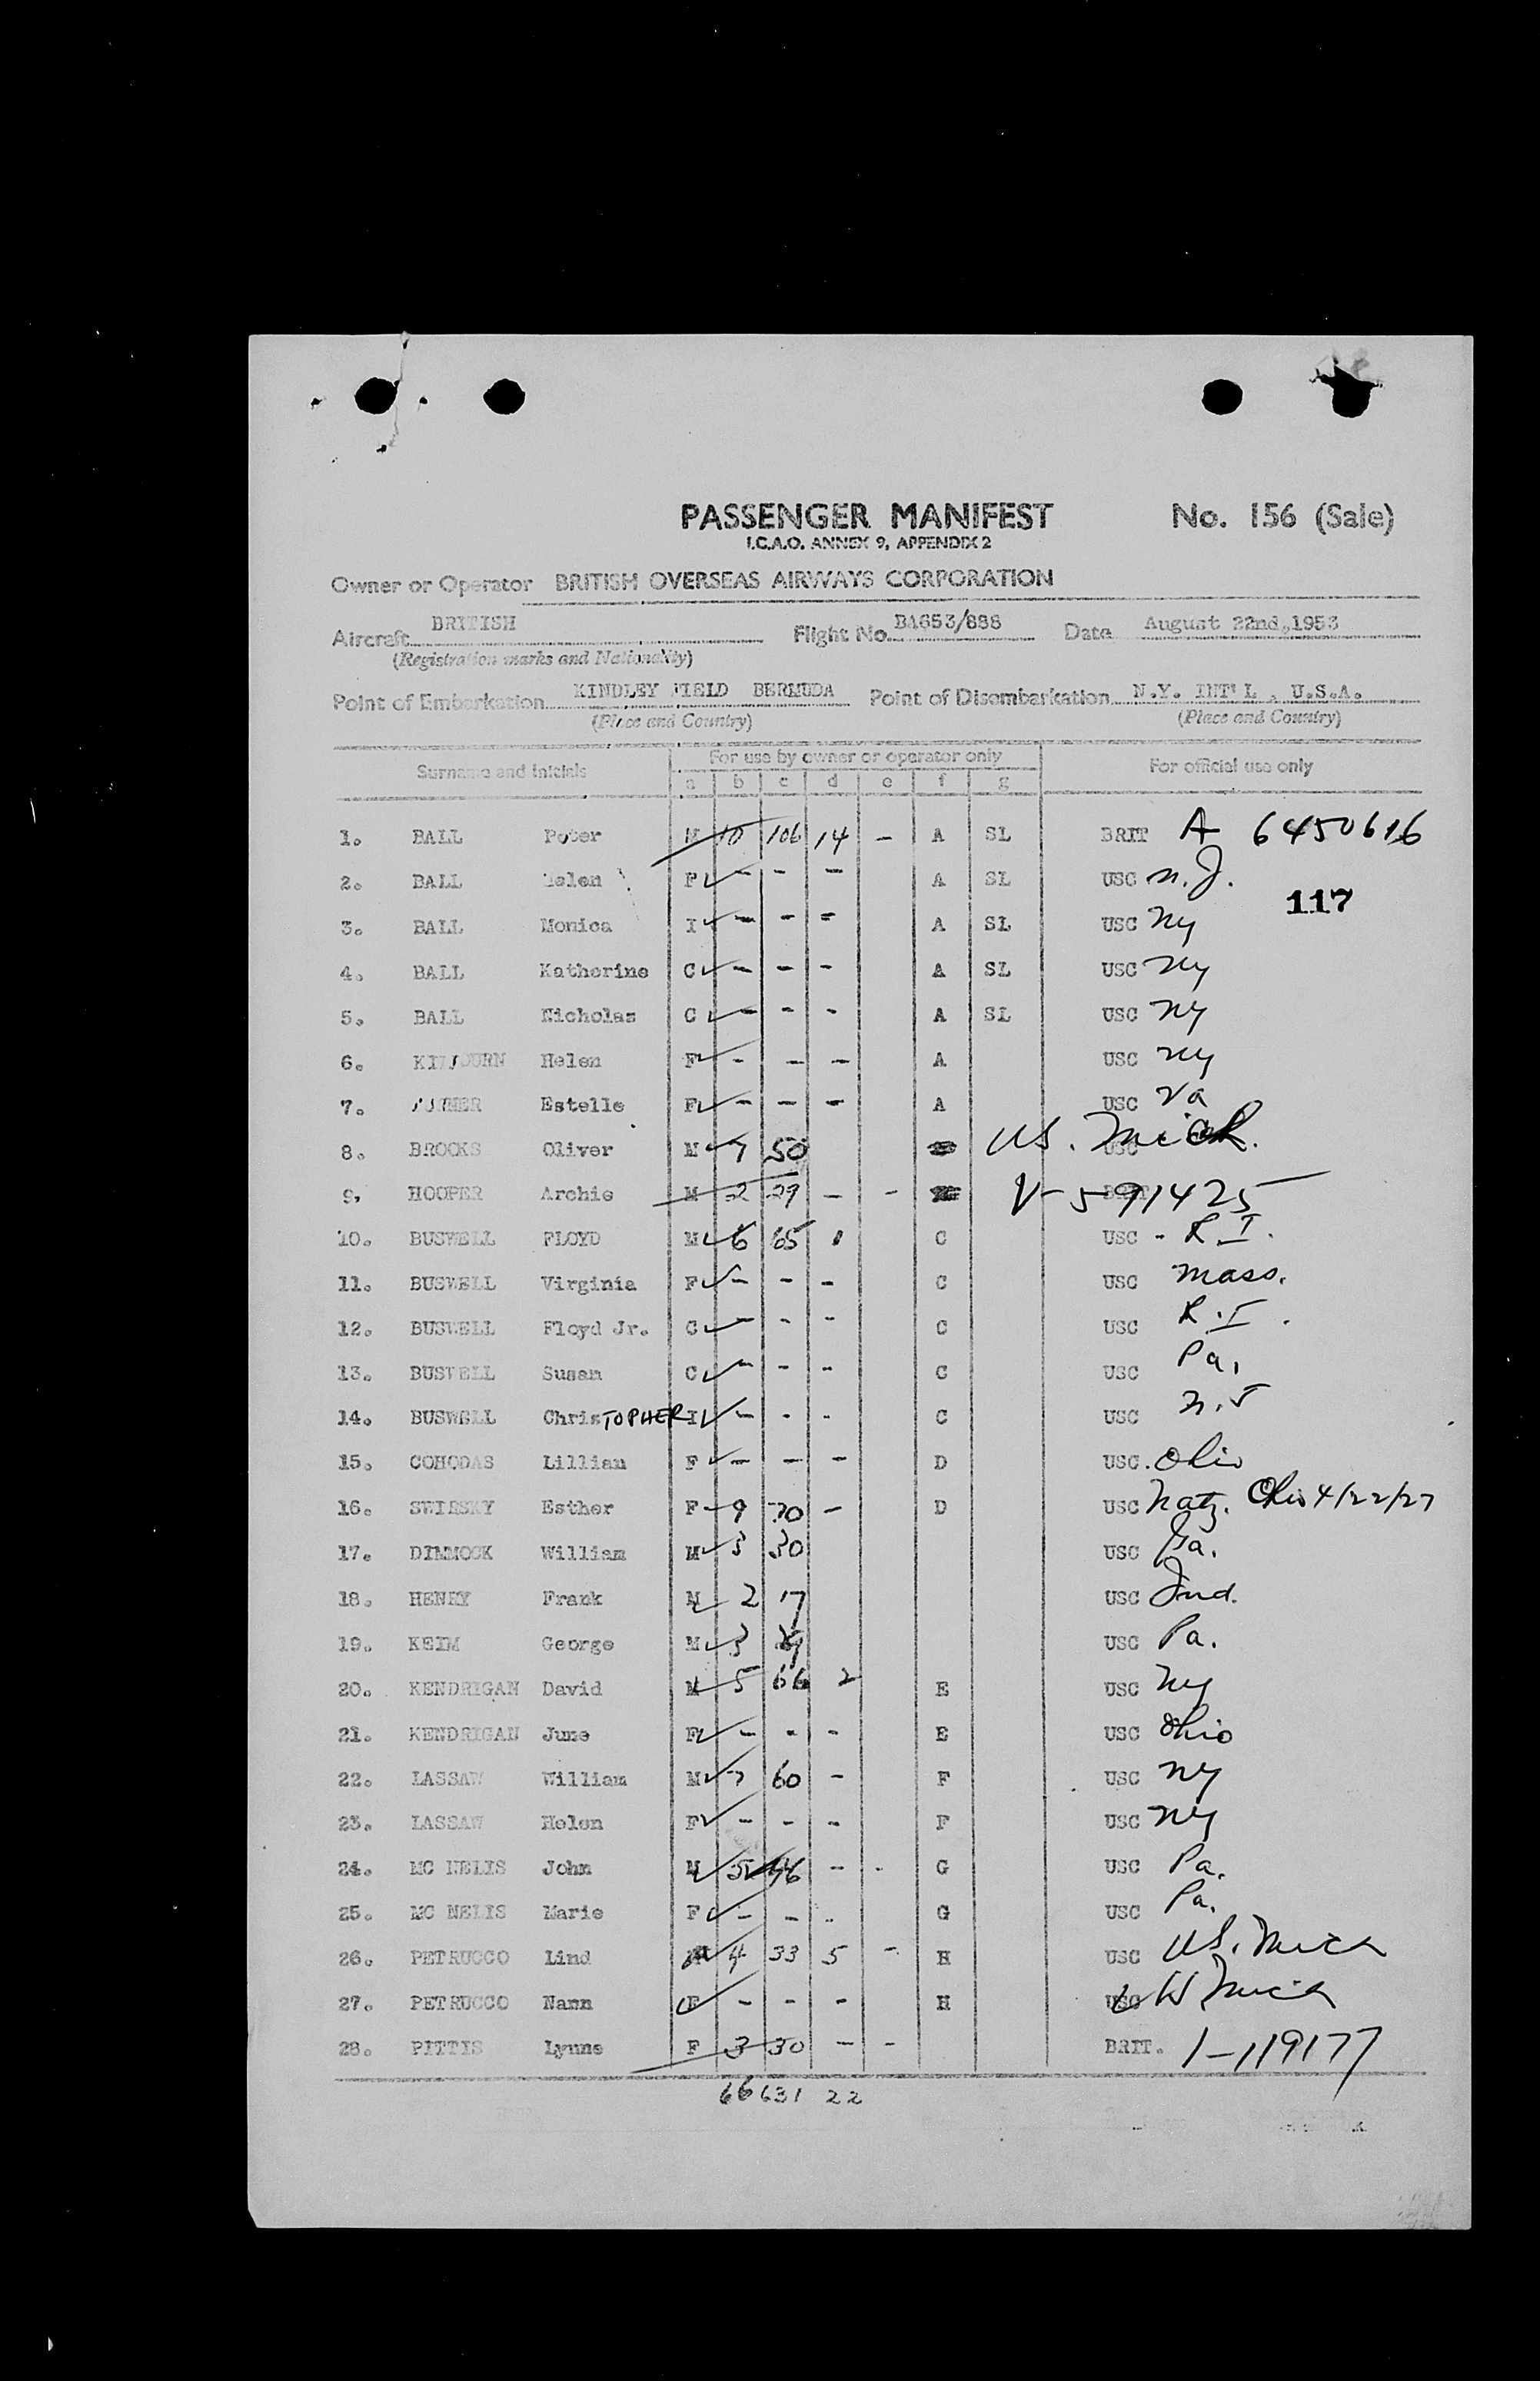 PASSENGER MANIFEST No. 156 (Sale)
I.C.A.O. ANNEX 9, APPENDIX 2
Owner or Operator BRITISH OVERSEAS AIRWAYS CORPORATION
Aircraft BRITISH Flight No. BA653/888 Date August 22nd,1953
(Registration marks and Nationality)
Point of Embarkation KINDLEY FIELD BERMUDA Point of Disembarkation N.Y. INT'L , U.S.A.
(Place and Country) (Place and Country)
Surname and Initials For use by owner or operator only For official use only
a b c d e f g
1. BALL Peter M 10 106 14 - A SL BRIT A 6450616
2. BALL Helen F ✓ - - - A SL USC N.J.
117
3. BALL Monica I ✓ - - - A SL USC NY
4. BALL Katherine C ✓ - - - A SL USC NY
5. BALL Nicholas C ✓ - - - A SL USC NY
6. Helen F ✓ - - - A USC NY
7. Estelle F ✓ - - - A USC Va
8. BROOKS Oliver M ✓ 7 50 US. Mich. USC
9. HOOPER Archie M 2 29 - - V-591425
10. BUSWELL FLOYD M ✓ 6 65 C USC - R.I.
11. BUSWELL Virginia F ✓ - - - C USC Mass.
12. BUSWELL Floyd Jr. C ✓ - - - C USC R.I.
13. BUSWELL Susan C ✓ - - - C USC Pa.
14. BUSWELL ChrisTOPHER I ✓ - - - C USC N.J
15. COHODAS Lillian F ✓ - - - D USC. Ohio
16. SWIRSKY Esther F - 9 70 - D USC Natz. Ohio 4/22/27
17. DIMMOCK William M ✓ 3 30 USC
18. HENRY Frank M ✓ 2 17 USC Ind.
19. KEIM George M ✓ 3 USC Pa.
20. KENDRIGAN David M ✓ 5 66 2 E USC NY
21. KENDRIGAN June F ✓ - - - E USC Ohio
22. LASSAW William M ✓ 7 60 - F USC NY
23. LASSAW Helen F ✓ - - - F USC NY
24. MC NELIS John M ✓ 5 46 - - G USC Pa.
25. MC NELIS Marie F ✓ - - - G USC Pa.
26. PETRUCCO Lind 4 33 5 - H USC US. Mich
27. PETRUCCO Nann F ✓ - - - H USC Mich
28. PITTIS Lynne F 3 30 - - BRIT. 1-119177
66 631 22